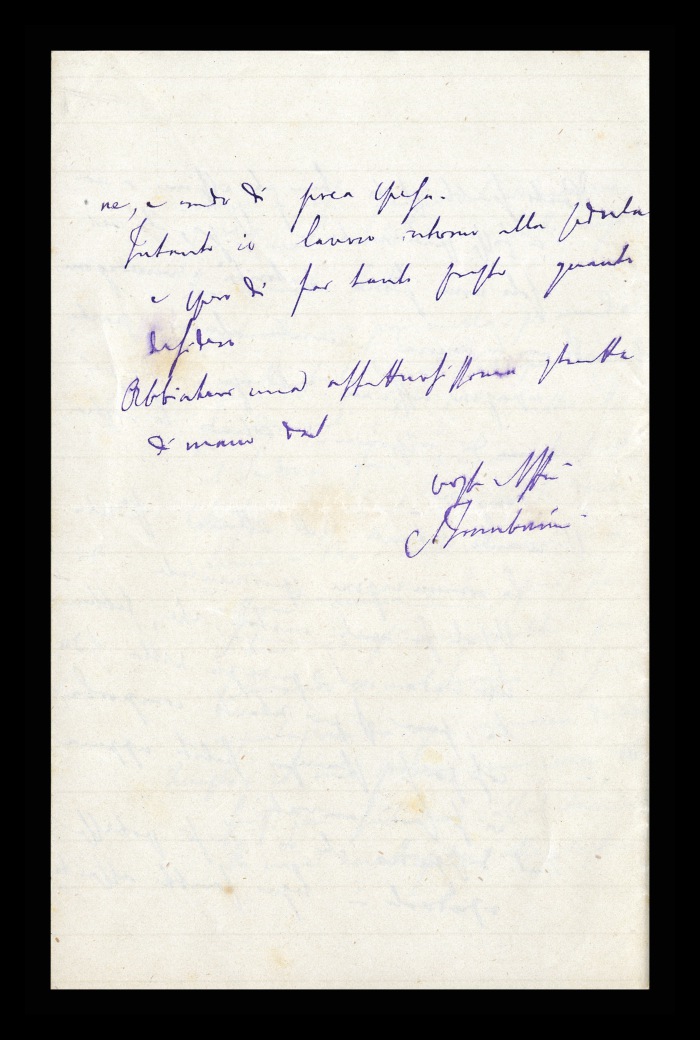 ne, e modo di poca spesa.
Intanto io lavoro intorno alla pedula
e spero di far tanto presto quanto
desidero
Abbiatevi una affettuosissima stretta
di mano dal
vostro Affmo